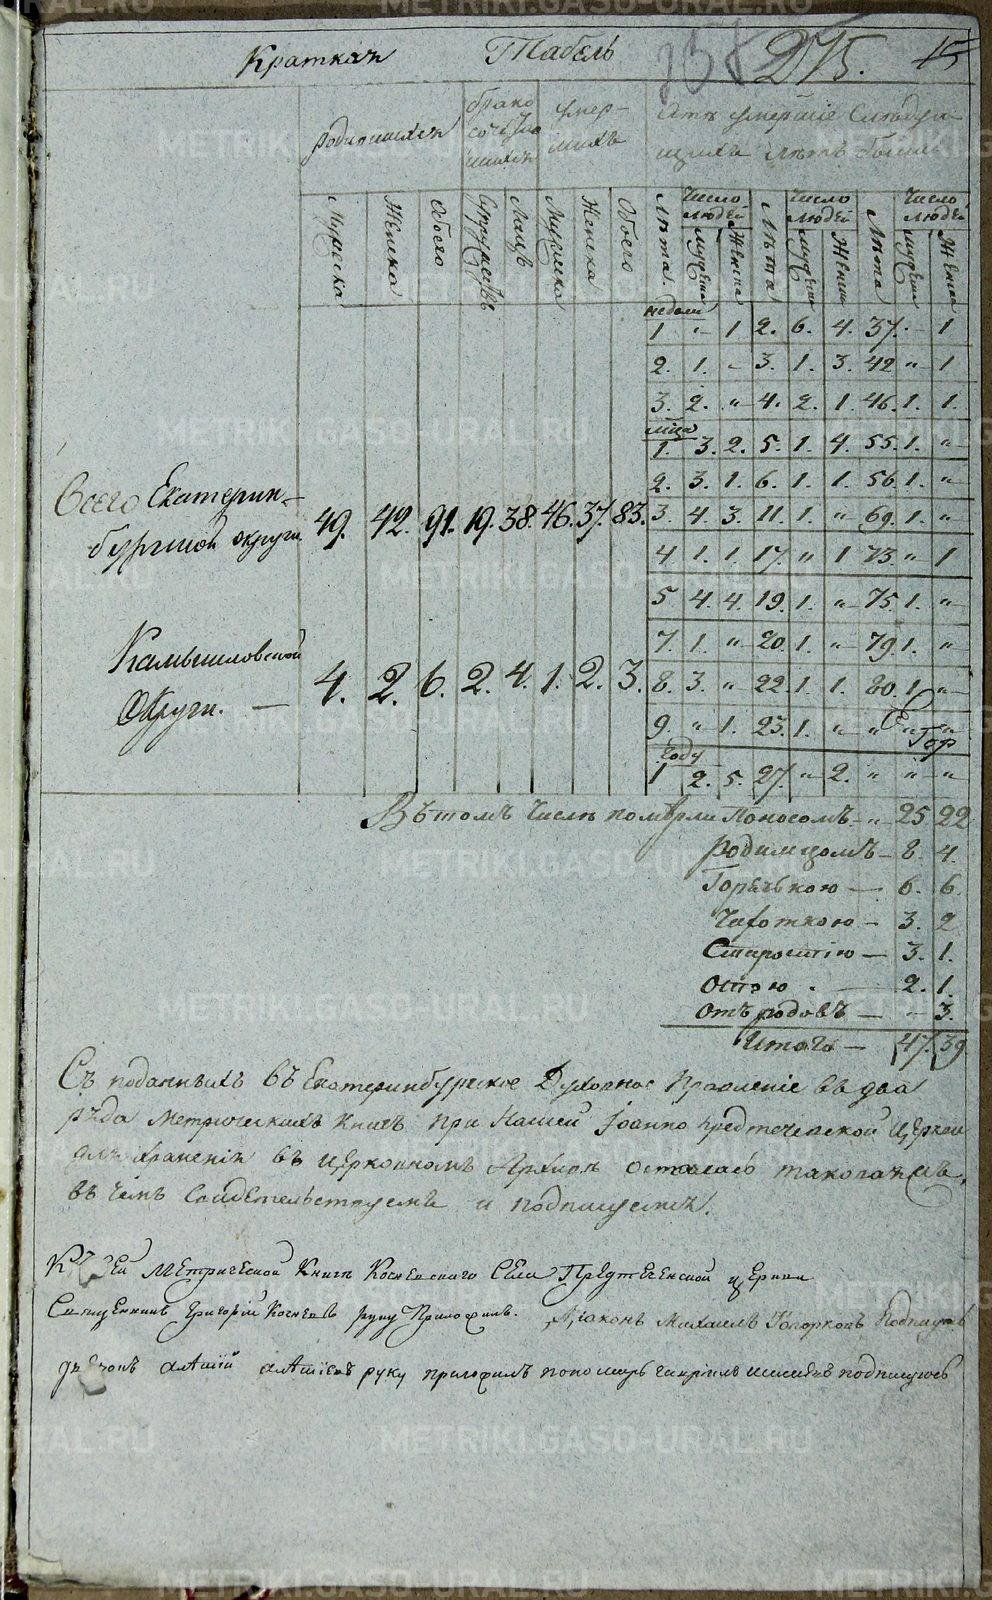 Краткая Табель 275. 15
родившихся
брако
сочетав
шихся
умер-
шихъ
умершіе
лѣтъ были
Мужеска Женска Обоего Супружествъ Лицъ Мужеска Женска Обоего Лѣта Число людей Лѣта Число людей Лѣта Число людей
мужеска Женска мужеска Женска мужеска Женска
недели
1 „ 1 2. 6. 4. 37. - 1
2. 1. - 3. 1. 3. 42 „ 1
3. 2. „ 4. 2. 1. 46. 1. 1.
мца
1. 3. 2. 5. 1. 4. 55. 1. „
2. 3. 1. 6. 1. 1. 56 1. „
Всего Екатерин-
бургской округи 49. 42. 91. 19. 38. 46. 37. 83. 3. 4. 3. 11. 1. „ 69. 1. „
4 1. 1. 17. „ 1 73. „ 1
5 4. 4. 19. 1. „ 75. 1. „
7. 1. „ 20. 1. „ 79. 1. „
Камышловской
Округи. — 4. 2. 6. 2. 4. 1. 2. 3. 8. 3. „ 22. 1. 1. 80. 1. „
9. „ 1. 23. 1. „ „ „ „
году
1 2. 5. 27. „ 2. „ „ „
Въ томъ числѣ померли Поносомъ - „ 25 22
Родимцомъ — 8. 4.
Горячкою — 6. 6.
Чахоткою — 3. 2
Старостію — 3. 1.
Оспою . — 2. 1.
Отъ родовъ — - 3.
Итого — 47. 39
Съ поданныхъ въ Екатеринбургское Духовное Правленіе въ два
ряда метрическихъ книгъ при Нашей Іоанно предтечевской церкви
для храненія въ церковномъ Архивѣ осталась таковаяжъ,
въ чемъ Свидѣтельствуемъ и подпишемся.
Къ сей метрической книгѣ Села Предтеченской церкви
Священникъ Григорій руку Приложилъ. Діаконъ Михаилъ Топорковъ Подпишусь
дьячокъ руку приложилъ пономарь подпишусь
METRIKI.GASO-URAL.RU